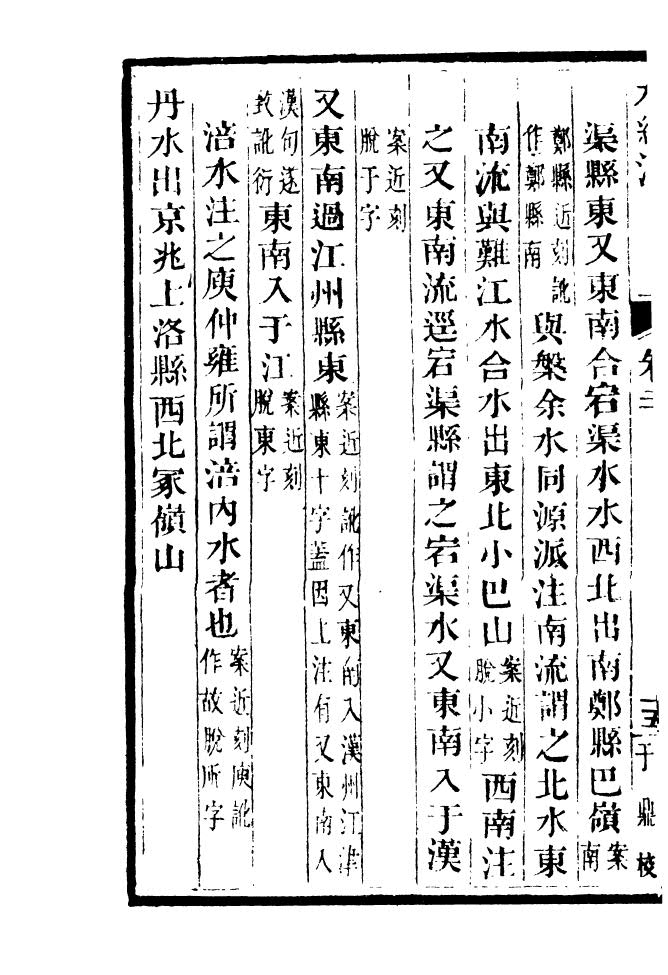 于鼎校
渠縣東又東南合宕渠水水西北出南鄭縣巴嶺案南
鄭縣近刻訛作鄭縣南與槃余水同源派注南流謂之北水東
南流與難江水合水出東北小巴山案近刻脫小字西南注
之又東南流逕宕渠縣謂之宕渠水又東南入于漢
案近刻脫于字
又東南過江州縣東案近刻訛作又東南入漢州江津縣東十字蓋因上注有又東南入
漢句遂致訛衍東南入于江案近刻脫東字
涪水注之庾仲雍所謂涪內水者也案近刻庾訛作故脫所字
丹水出京兆上洛縣西北冢嶺山